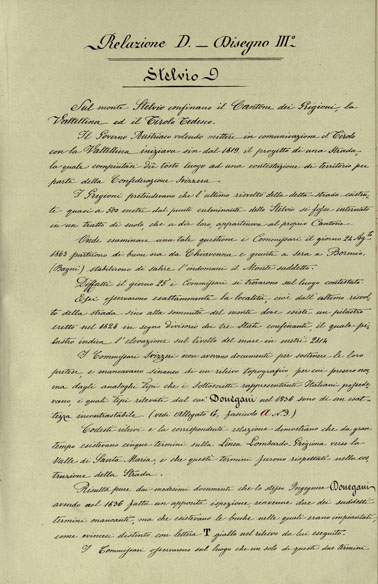 Relazione D. _ Disegno III°
Stelvio D
Sul monte Stelvio confinano il Cantone dei Grigioni, la
Valtellina ed il Tirolo Tedesco.
Il Governo Austriaco volendo mettere in comunicazione il Tirolo
con la Valtellina iniziava sin dal 1819, il progetto di una strada,
la quale compiutasi diè tosto luogo ad una contestazione di territorio per
parte della Confederazione Svizzera.
I Grigioni pretendevano che l'ultimo risvolto della detta strada esisten-
te quasi a metri dal punto culminante dello Stelvio si fosse internato
in un tratto di suolo che a dir loro apparteneva al proprio Cantone.
Onde esaminare una tale questione i Commissari il giorno 24 Agto
1863 partirono di buon'ora da Chiavenna e giunti a sera a Bormio,
(Bagni) stabilirono di salire l'indomani il Monte suddetto.
Diffatti il giorno 25 i Commissari si trovarono sul luogo contestato.
Essi osservarono esattamente la località, cioè dall'ultimo risvol-
to della strada sino alla sommità del monte dove esiste un pilastro
eretto nel 1828 in segno divisorio dei tre Stati confinanti, il quale pi-
lastro indica l'elevazione sul livello del mare in metri 2814
I Commissari Svizzeri non avevano documenti per sostenere le loro
pretese, e mancavano sinanco di un rilievo topografico per cui presero nor-
ma dagli analoghi tipi che i sottoscritti rappresentanti Italiani possede-
vano, e quali tipi rilevati dal Donegani nel 1836 sono di un'esat-
tezza incontrastabile (vedi Allegato 6, fascicolo A N. 3.)
Codesti rilievi e la corrispondente relazione dimostrano che da gran
tempo esistevano cinque termini sulla Linea Lombardo-Grigiona verso la
Valle di Santa Maria, e che questi termini furono rispettati nella co-
struzione della Strada.
Risulta pure dai medesimi documenti che lo stesso Ingegnere Donegani
avendo nel 1836 fatta un'apposita ispezione, rinvenne due dei suddetti
termini mancanti, ma che esistevano le buche nelle quali erano impiantati,
come evincesi distinto con lettera T giallo nel rilievo da lui eseguito.
I Commissari osservarono sul luogo che un solo di questi due termini